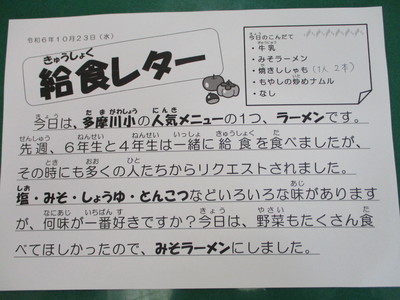 令和6年10月23日(水)
きゅうしょく
給食レター
今日のこんだて
・牛乳
・みそラーメン
・焼きししゃも(1人2本)
・もやしの炒めナムル
・なし
今日は、多摩川小の人気メニューの1つ、ラーメンです。
先週、6年生と4年生は一緒に給食を食べましたが、
その時にも多くの人たちからリクエストされました。
塩・みそ・しょうゆ・とんこつなどいろいろな味があります
が、何味が一番好きですか?今日は、野菜もたくさん食
べてほしかったので、みそラーメンにしました。